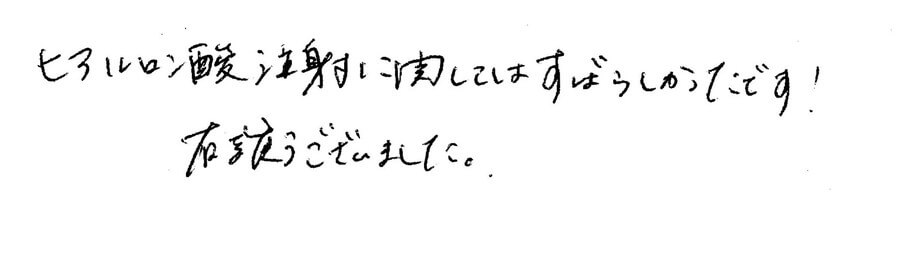 ヒアルロン酸注射に関してはすばらしかったです!
有難うございました。